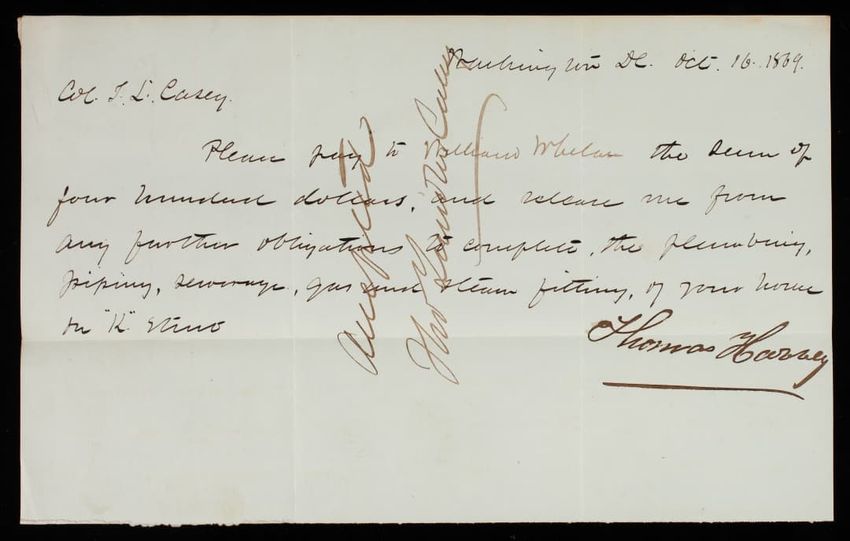 Washington DC. Oct. 16. 1869.
Col. T. L. Casey.
Please pay to William Whelan the sum of
four hundred dollars, and release me from
any further obligations to complete, the plumbing,
piping, sewerage, gas and steam fitting, of your house
on "K" Street
Thomas Harvey
Accepted
Thos Lincoln Casey